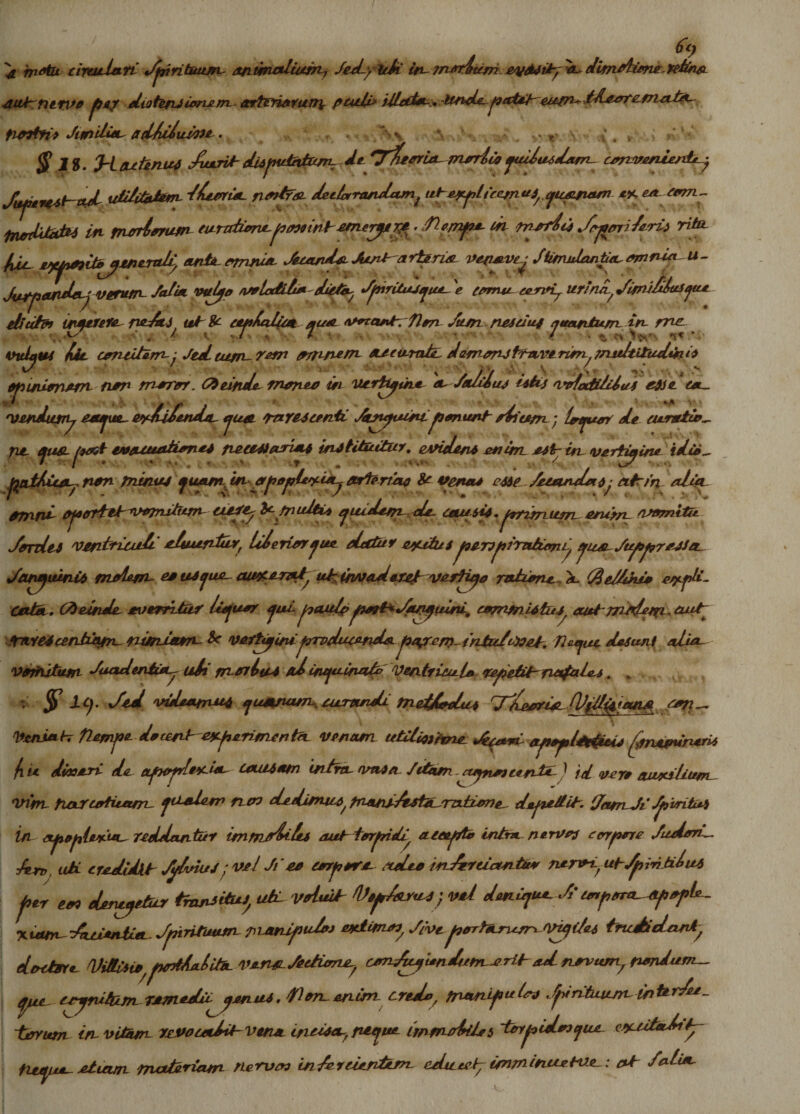 69
a motu circulari Spirituum animalium, sed, ubi in morbum evasit, a dimotione retina
aut nervo per distensionem arteriarum oculis illata. unde patet eum Theoremata
nostris similia adhibuisse.
§ 18. Hactenus fuerit disputatum de Theoria morbis quibusdam conveniente;
Superest ad utilitatem theoria nostra declarandam, ut explicemus, quaenam ex ea com-
moditates in morborum curatione possint emergere. Nempe in morbis soporiferis rite
hic expositis generali, ante omnia secanda sunt arteria venaeve; Stimulantia omnia u-
surpanda; verum Salia vulgo volatilia dicta, Spiritusque e cornu cervi, urina, similibusque
elicitos ingerere nefas, ut & cephalica quae vocant. Non sum nescius quantum in me
vulgus hic concitem; sed cum rem omnem accurate demonstraverim, multitudinis
opinionem non moror. Deinde moneo in vertigine a Salibus istis volatilibus esse ca-
vendum, eaque exhibenda, quae rarescenti Sanguini ponunt obicem; loquor de curatio-
ne quae post evacuationes necessarias instituitur. evidens enim est, in vertigine idio-
pathica, non minus quam in apoplexia, arterias & venas esse secandas; at in alia
omni oportet vomitum ciere, & multis quidem de causis. primum enim vomitu
Sordes ventriculi eluuntur, liberiorque datur exitus perspirationi, quae suppressa
Sanguinis molem eo usque auxerat, ut invaderet vertigo ratione a Bellinio expli-
cata. Deinde everritur liquor qui paulo post Sanguini, commistus, aut molem, aut
rarescentiam nimiam & vertigini producenda parem intulisset. Neque desunt alia
vomitum suadentia, ubi morbus ab inquinato Ventriculo repetit natales.
§ 19. Sed videamus quaenam, curandi methodus Theoria Willisiana con-
veniat. Nempe docent experimenta venam utilissime secari apoplecticis (memineris
hic dixeri de apoplexia causam intra vasa sitam agnoscente) id vero auxilium
vim narcoticam qualem nos dedimus, manifesta ratione depellit. Nam si Spiritus
in apoplexia reddantur immobiles aut torpidi, accepto intra nervos corpore Sudori-
fero, uti credidit Sylvius; vel si eo corpore adeo inferciantur nervi, ut Spiritibus
per eos denegetur transitus, uti voluit Wepferus; vel denique si corpora apople-
xiam facientia Spirituum manipulos extimos, sive portarum vigiles trucidant,
doctore Willisio, posthabita vena Sectione, confugiendum erit ad novum, nondum
que cognitum remedii genus. Non enim credo, manipulos Spirituum interfec-
torum in vitam revocabit Vena incisa, neque immobiles torpidosque excitabit,
neque etiam materiam nervos infercientem educet, imminuetve: at Salia